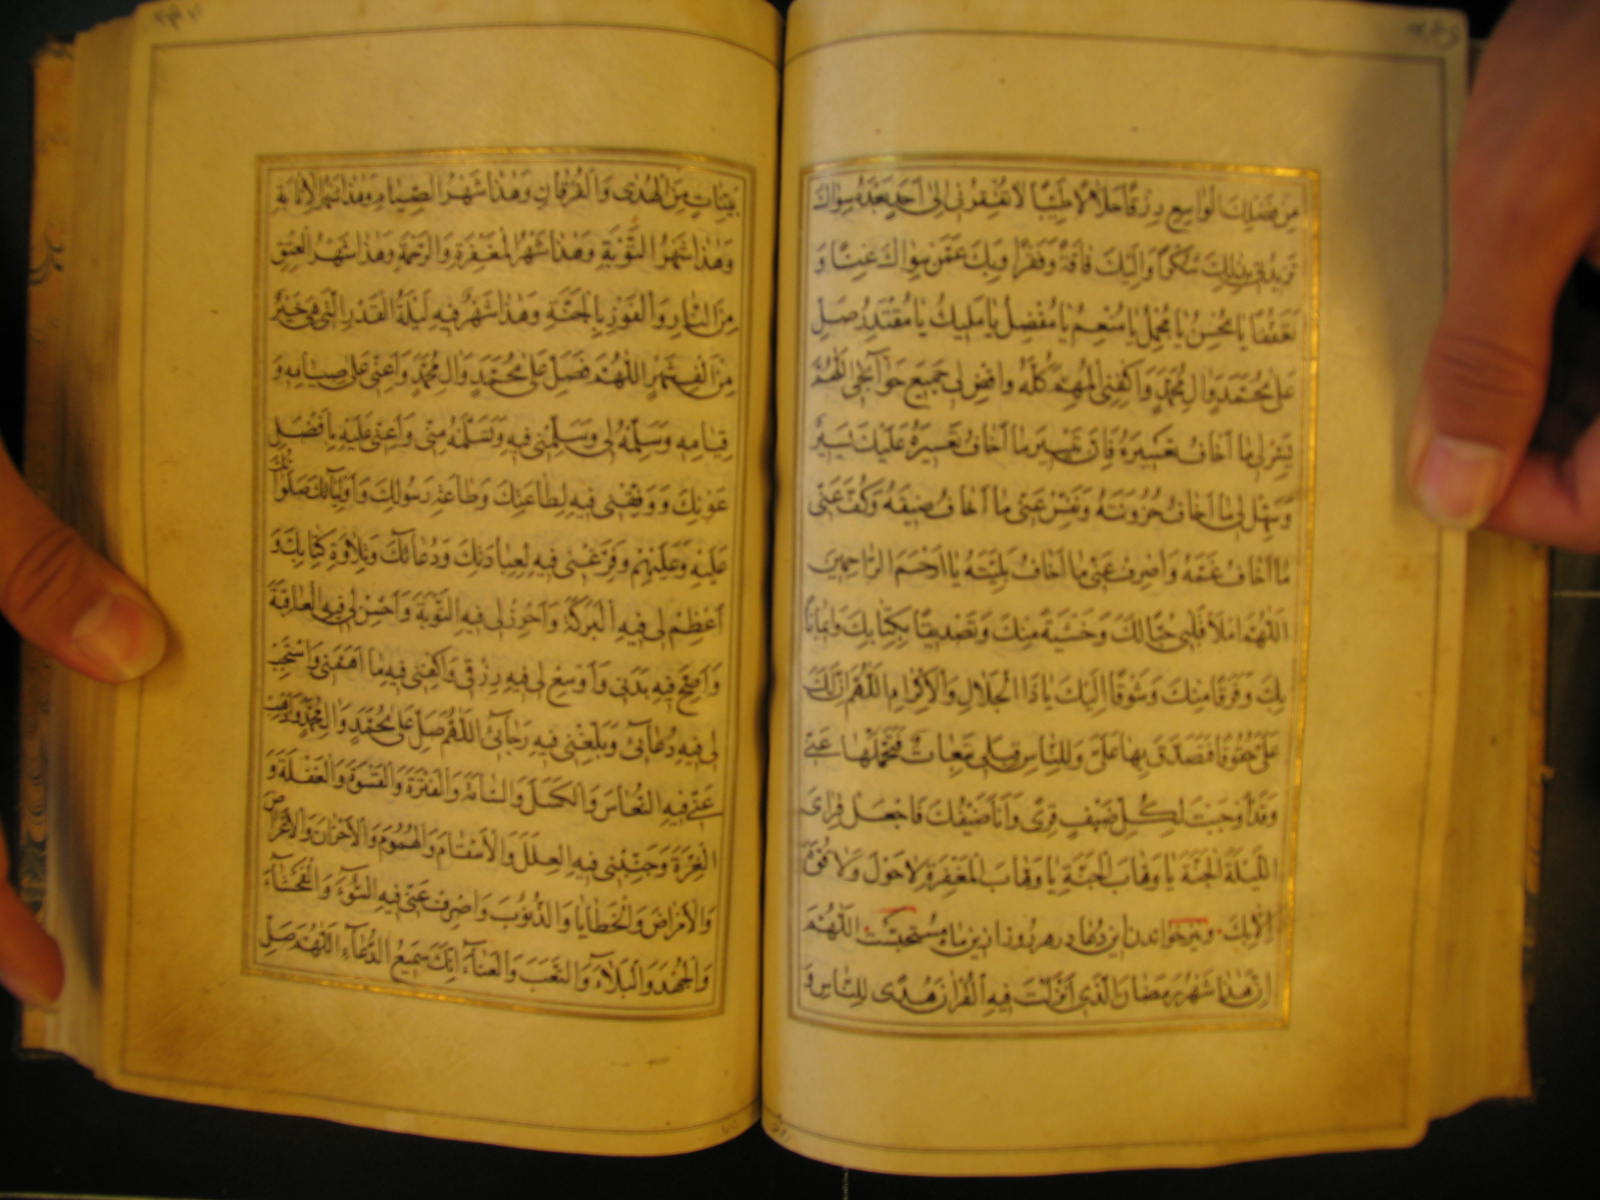 مِنْ فَضْلِكَ الْوَاسِعِ رِزْقًا حَلَالًا طَيِّبًا لَا تُفْقِرُنِي إِلَىٰ أَحَدٍ بَعْدَهُ سِوَاكَ
تَزِيدُنِي بِذَٰلِكَ شُكْرًا وَإِلَيْكَ فَاقَةً وَفَقْرًا وَبِكَ عَمَّنْ سِوَاكَ غِنًا وَ
تَعَفُّفًا يَا مُحْسِنُ يَا مُجْمِلُ يَا مُنْعِمُ يَا مُفْضِلُ يَا مَلِيكُ يَا مُقْتَدِرُ صَلِّ
عَلَىٰ مُحَمَّدٍ وَآلِ مُحَمَّدٍ وَاكْفِنِي الْمُهِمَّ كُلَّهُ وَاقْضِ لِي جَمِيعَ حَوَائِجِي اللَّهُمَّ
يَسِّرْ لِي مَا أَخَافُ تَعْسِيرَهُ فَإِنَّ تَيْسِيرَ مَا أَخَافُ تَعْسِيرَهُ عَلَيْكَ يَسِيرٌ
وَسَهِّلْ لِي مَا أَخَافُ حُزُونَتَهُ وَنَفِّسْ عَنِّي مَا أَخَافُ ضِيقَهُ وَكُفَّ عَنِّي
مَا أَخَافُ غَمَّهُ وَاصْرِفْ عَنِّي مَا أَخَافُ بَلِيَّتَهُ يَا أَرْحَمَ الرَّاحِمِينَ
اللَّهُمَّ امْلَأْ قَلْبِي حُبًّا لَكَ وَخَشْيَةً مِنْكَ وَتَصْدِيقًا بِكِتَابِكَ وَإِيمَانًا
بِكَ وَفَرَقًا مِنْكَ وَشَوْقًا إِلَيْكَ يَا ذَا الْجَلَالِ وَالْإِكْرَامِ اللَّهُمَّ إِنَّ لَكَ
عَلَيَّ حُقُوقًا فَتَصَدَّقْ بِهَا عَلَيَّ وَلِلنَّاسِ قِبَلِي تَبِعَاتٌ فَتَحَمَّلْهَا عَنِّي
وَقَدْ أَوْجَبْتَ لِكُلِّ ضَيْفٍ قِرًى وَأَنَا ضَيْفُكَ فَاجْعَلْ قِرَايَ
اللَّيْلَةَ الْجَنَّةَ يَا وَهَّابَ الْجَنَّةِ يَا وَهَّابَ الْمَغْفِرَةِ لَا حَوْلَ وَلَا قُوَّةَ
إِلَّا بِكَ وَنیز خواندن این دعا در هر روز از این ماه مستحبست اللَّهُمَّ
إِنَّ هَٰذَا شَهْرُ رَمَضَانَ الَّذِي أَنْزَلْتَ فِيهِ الْقُرْآنَ هُدًى لِلنَّاسِ وَ
بَيِّنَاتٍ مِنَ الْهُدَىٰ وَالْفُرْقَانِ وَهَٰذَا شَهْرُ الصِّيَامِ وَهَٰذَا شَهْرُ الْإِنَابَةِ
وَهَٰذَا شَهْرُ التَّوْبَةِ وَهَٰذَا شَهْرُ الْمَغْفِرَةِ وَالرَّحْمَةِ وَهَٰذَا شَهْرُ الْعِتْقِ
مِنَ النَّارِ وَالْفَوْزِ بِالْجَنَّةِ وَهَٰذَا شَهْرٌ فِيهِ لَيْلَةُ الْقَدْرِ الَّتِي هِيَ خَيْرٌ
مِنْ أَلْفِ شَهْرٍ اللَّهُمَّ فَصَلِّ عَلَىٰ مُحَمَّدٍ وَآلِ مُحَمَّدٍ وَأَعِنِّي عَلَىٰ صِيَامِهِ وَ
قِيَامِهِ وَسَلِّمْهُ لِي وَسَلِّمْنِي فِيهِ وَتَسَلَّمْهُ مِنِّي وَأَعِنِّي عَلَيْهِ بِأَفْضَلِ
عَوْنِكَ وَوَفِّقْنِي فِيهِ لِطَاعَتِكَ وَطَاعَةِ رَسُولِكَ وَأَوْلِيَائِكَ صَلَوَاتُكَ
عَلَيْهِ وَعَلَيْهِمْ وَفَرِّغْنِي فِيهِ لِعِبَادَتِكَ وَدُعَائِكَ وَتِلَاوَةِ كِتَابِكَ وَ
أَعْظِمْ لِي فِيهِ الْبَرَكَةَ وَأَحْرِزْ لِي فِيهِ التَّوْبَةَ وَأَحْسِنْ لِي فِيهِ الْعَافِيَةَ
وَأَصِحَّ فِيهِ بَدَنِي وَأَوْسِعْ لِي فِيهِ رِزْقِي وَاكْفِنِي فِيهِ مَا أَهَمَّنِي وَاسْتَجِبْ
لِي فِيهِ دُعَائِي وَبَلِّغْنِي فِيهِ رَجَائِي اللَّهُمَّ صَلِّ عَلَىٰ مُحَمَّدٍ وَآلِ مُحَمَّدٍ وَأَذْهِبْ
عَنِّي فِيهِ النُّعَاسَ وَالْكَسَلَ وَالسَّأْمَةَ وَالْفَتْرَةَ وَالْقَسْوَةَ وَالْغَفْلَةَ وَ
الْغِرَّةَ وَجَنِّبْنِي فِيهِ الْعِلَلَ وَالْأَسْقَامَ وَالْهُمُومَ وَالْأَحْزَانَ وَالْأَعْرَاضَ
وَالْأَمْرَاضَ وَالْخَطَايَا وَالذُّنُوبَ وَاصْرِفْ عَنِّي فِيهِ السُّوءَ وَالْفَحْشَاءَ
وَالْجَهْدَ وَالْبَلَاءَ وَالتَّعَبَ وَالْعَنَاءَ إِنَّكَ سَمِيعُ الدُّعَاءِ اللَّهُمَّ صَلِّ